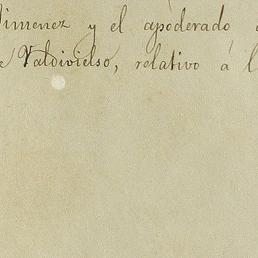 Jimenez y el apoderado
Valdivielso, relativo á